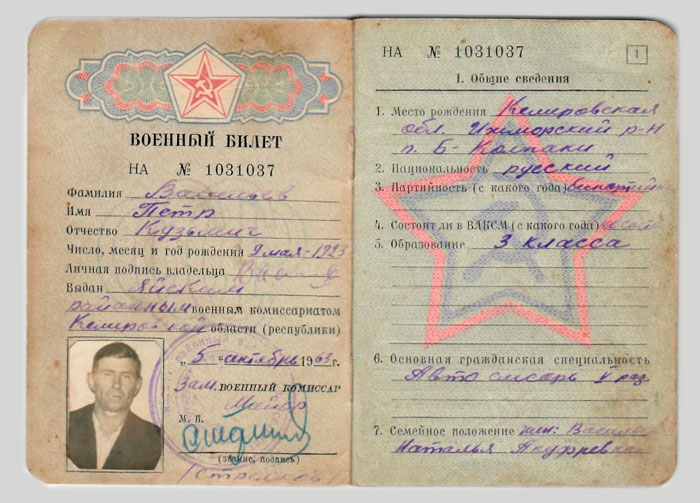 ВОЕННЫЙ БИЛЕТ
НА № 1031037
Фамилия Васильев
Имя Петр
Отчество Кузьмич
Число, месяц и год рождения 9 мая - 1923
Личная подпись владельца
Выдан Яйским
районным военным комиссариатом
Кемеровской области (республики)
„5“ октябрь 1963 г.
Зам. ВОЕННЫЙ КОМИССАР
Майор
М. П.
(звание, подпись)
НА № 1031037
1
I. Общие сведения
1. Место рождения Кемеровская
обл. Ижморский р-н
п. Б-Колпаки
2. Национальность русский
3. Партийность (с какого года)
4. Состоит ли в ВЛКСМ (с какого года)
5. Образование 3 класса
6. Основная гражданская специальность
Авто слесарь V раз
7. Семейное положение жен:
Наталья